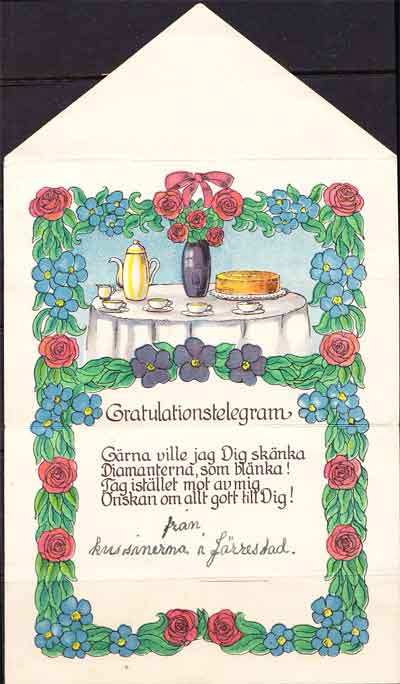 Gratulationstelegram
Gärna ville jag Dig skänka
Diamanterna, som blänka!
Tag istället mot av mig
Önskan om allt gott till Dig!
från
kusinerna i Järrestad.